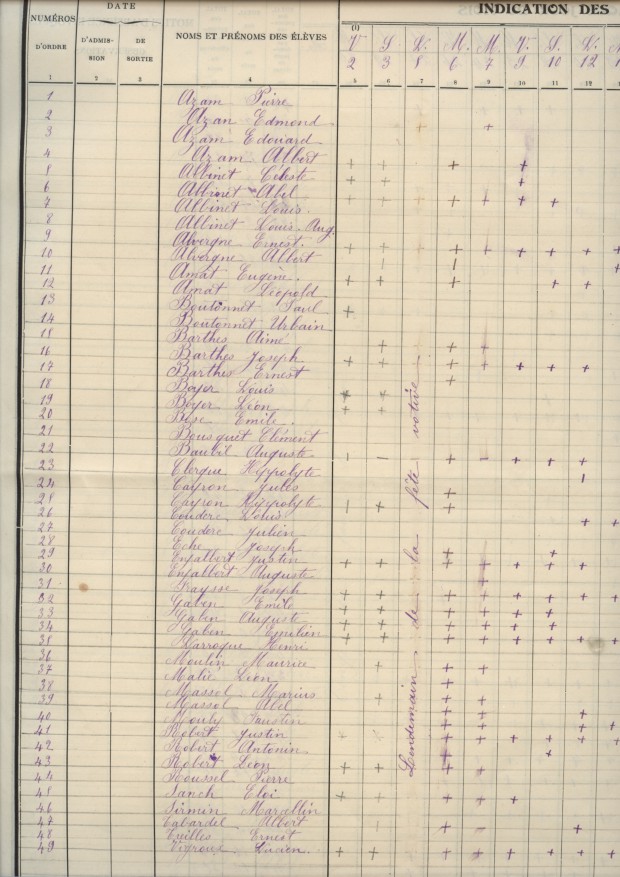 NUMÉROS D'ORDRE
DATE
D'ADMISSION
DE SORTIE
NOMS ET PRÉNOMS DES ÉLÈVES
INDICATION DES
(1)
V. S. L. M. M. V. S. L.
2 3 8 6 7 9 10 12
1 2 3 4 5 6 7 8 9 10 11 12
1 Azam Pierre
2 Azam Edmond
3 Azam Edouard
4 Azam Albert
5 Albinet Céleste
6 Albinet Abel
7 Albinet Louis
8 Albinet Louis Aug.
9 Alvergne Ernest
10 Alvergne Albert
11 Amat Eugène
12 Amat Léopold
13 Boutonnet Paul
14 Boutonnet Urbain
15 Barthes Aimé
16 Barthes Joseph
17 Barthes Ernest
18 Boyer Louis
19 Boyer Léon
20 Emile
21 Bousquet Clément
22 Auguste
23 Clergue Hippolyte
24 Cayron Jules
25 Cayron Hippolyte
26 Couderc Louis
27 Couderc Julien
28 Eche Joseph
29 Enjalbert Justin
30 Enjalbert Auguste
31 Fraysse Joseph
32 Gaben Emile
33 Gaben Auguste
34 Gaben Emilien
35 Larroque Henri
36 Moulin Maurice
37 Léon
38 Massol Marius
39 Massol Abel
40 Mouly Faustin
41 Robert Justin
42 Robert Antonin
43 Robert Léon
44 Roussel Pierre
45 Sanch Eloi
46 Sirmin Marcellin
47 Tabardel Albert
48 Ernest
49 Lucien
Lendemain de la fête votive